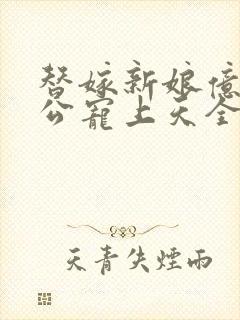 替嫁新娘億
公寵上天全
天青失煙雨